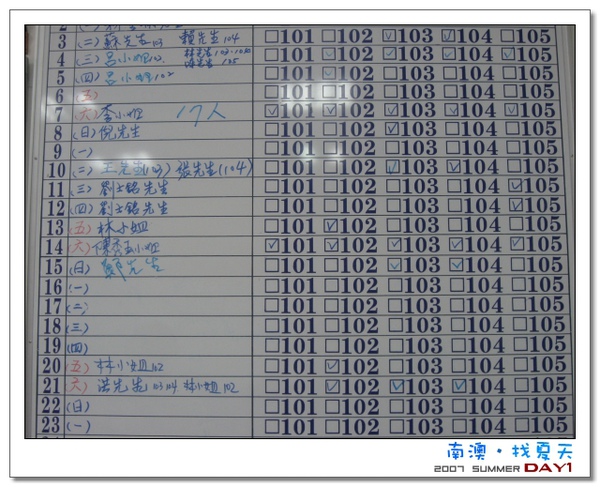 3 (二) 蘇先生103 賴先生104 □101 □102 ☑103 ☑104 □105
4 (三) 呂小姐102 □101 ☑102 ☑103 ☑104 ☑105
5 (四) 呂小姐102 □101 ☑102 □103 □104 □105
6 (五) □101 □102 □103 □104 □105
7 (六) 李小姐 17人 ☑101 ☑102 ☑103 ☑104 ☑105
8 (日) 倪先生 □101 □102 ☑103 □104 □105
9 (一) □101 □102 □103 □104 □105
10 (二) 王先生(103) 張先生(104) □101 □102 ☑103 ☑104 □105
11 (三) 劉士銘先生 □101 □102 □103 □104 ☑105
12 (四) 劉士銘先生 □101 □102 □103 □104 ☑105
13 (五) 林小姐 □101 ☑102 □103 □104 □105
14 (六) 陳 小姐 ☑101 ☑102 ☑103 ☑104 ☑105
15 (日) 鄭先生 □101 □102 ☑103 ☑104 □105
16 (一) □101 □102 □103 □104 □105
17 (二) □101 □102 □103 □104 □105
18 (三) □101 □102 □103 □104 □105
19 (四) □101 □102 □103 □104 □105
20 (五) 林小姐102 □101 ☑102 □103 □104 □105
21 (六) 洪先生 103 104 林小姐102 □101 ☑102 ☑103 ☑104 □105
22 (日) □101 □102 □103 □104 □105
23 (一) □101 □102 □103 □104 □105
南澳・找夏天
2007 SUMMER DAY1